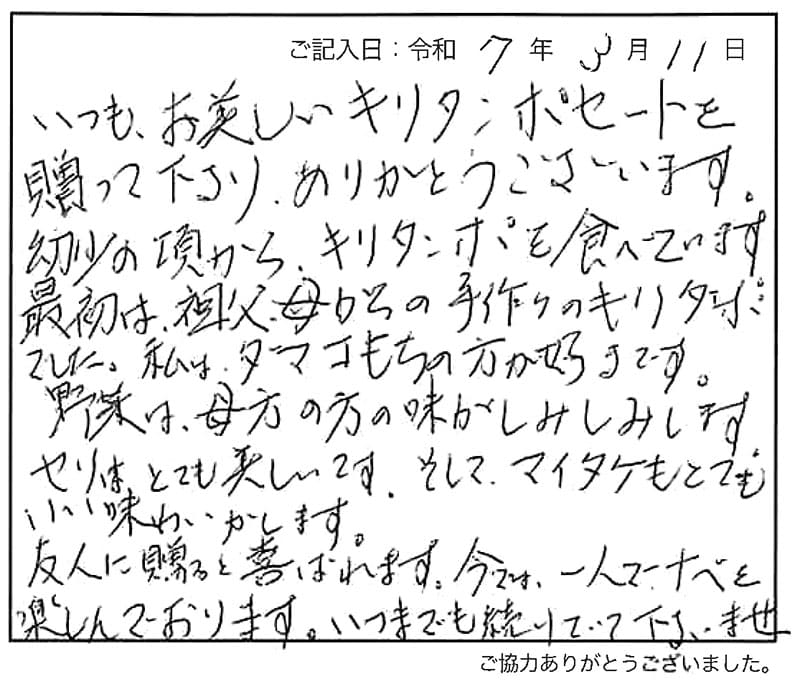 ご記入日：令和 7 年 3 月 11 日
いつも、お美しいキリタンポセートを
贈って下さり、ありがとうございます。
幼少の頃から、キリタンポを食べています
最初は、祖父、母からの手作りのキリタンポ
でした。私は、ダマコもちの方が好きです。
野菜は、母方の方の味がしみしみします
セリは、とても美しいです、そして、マイタケもとても
いい味わいがします。
友人に贈ると喜ばれます。今では、一人で、ナベを
楽しんでおります。いつまでも続けていて下さいませ
ご協力ありがとうございました。